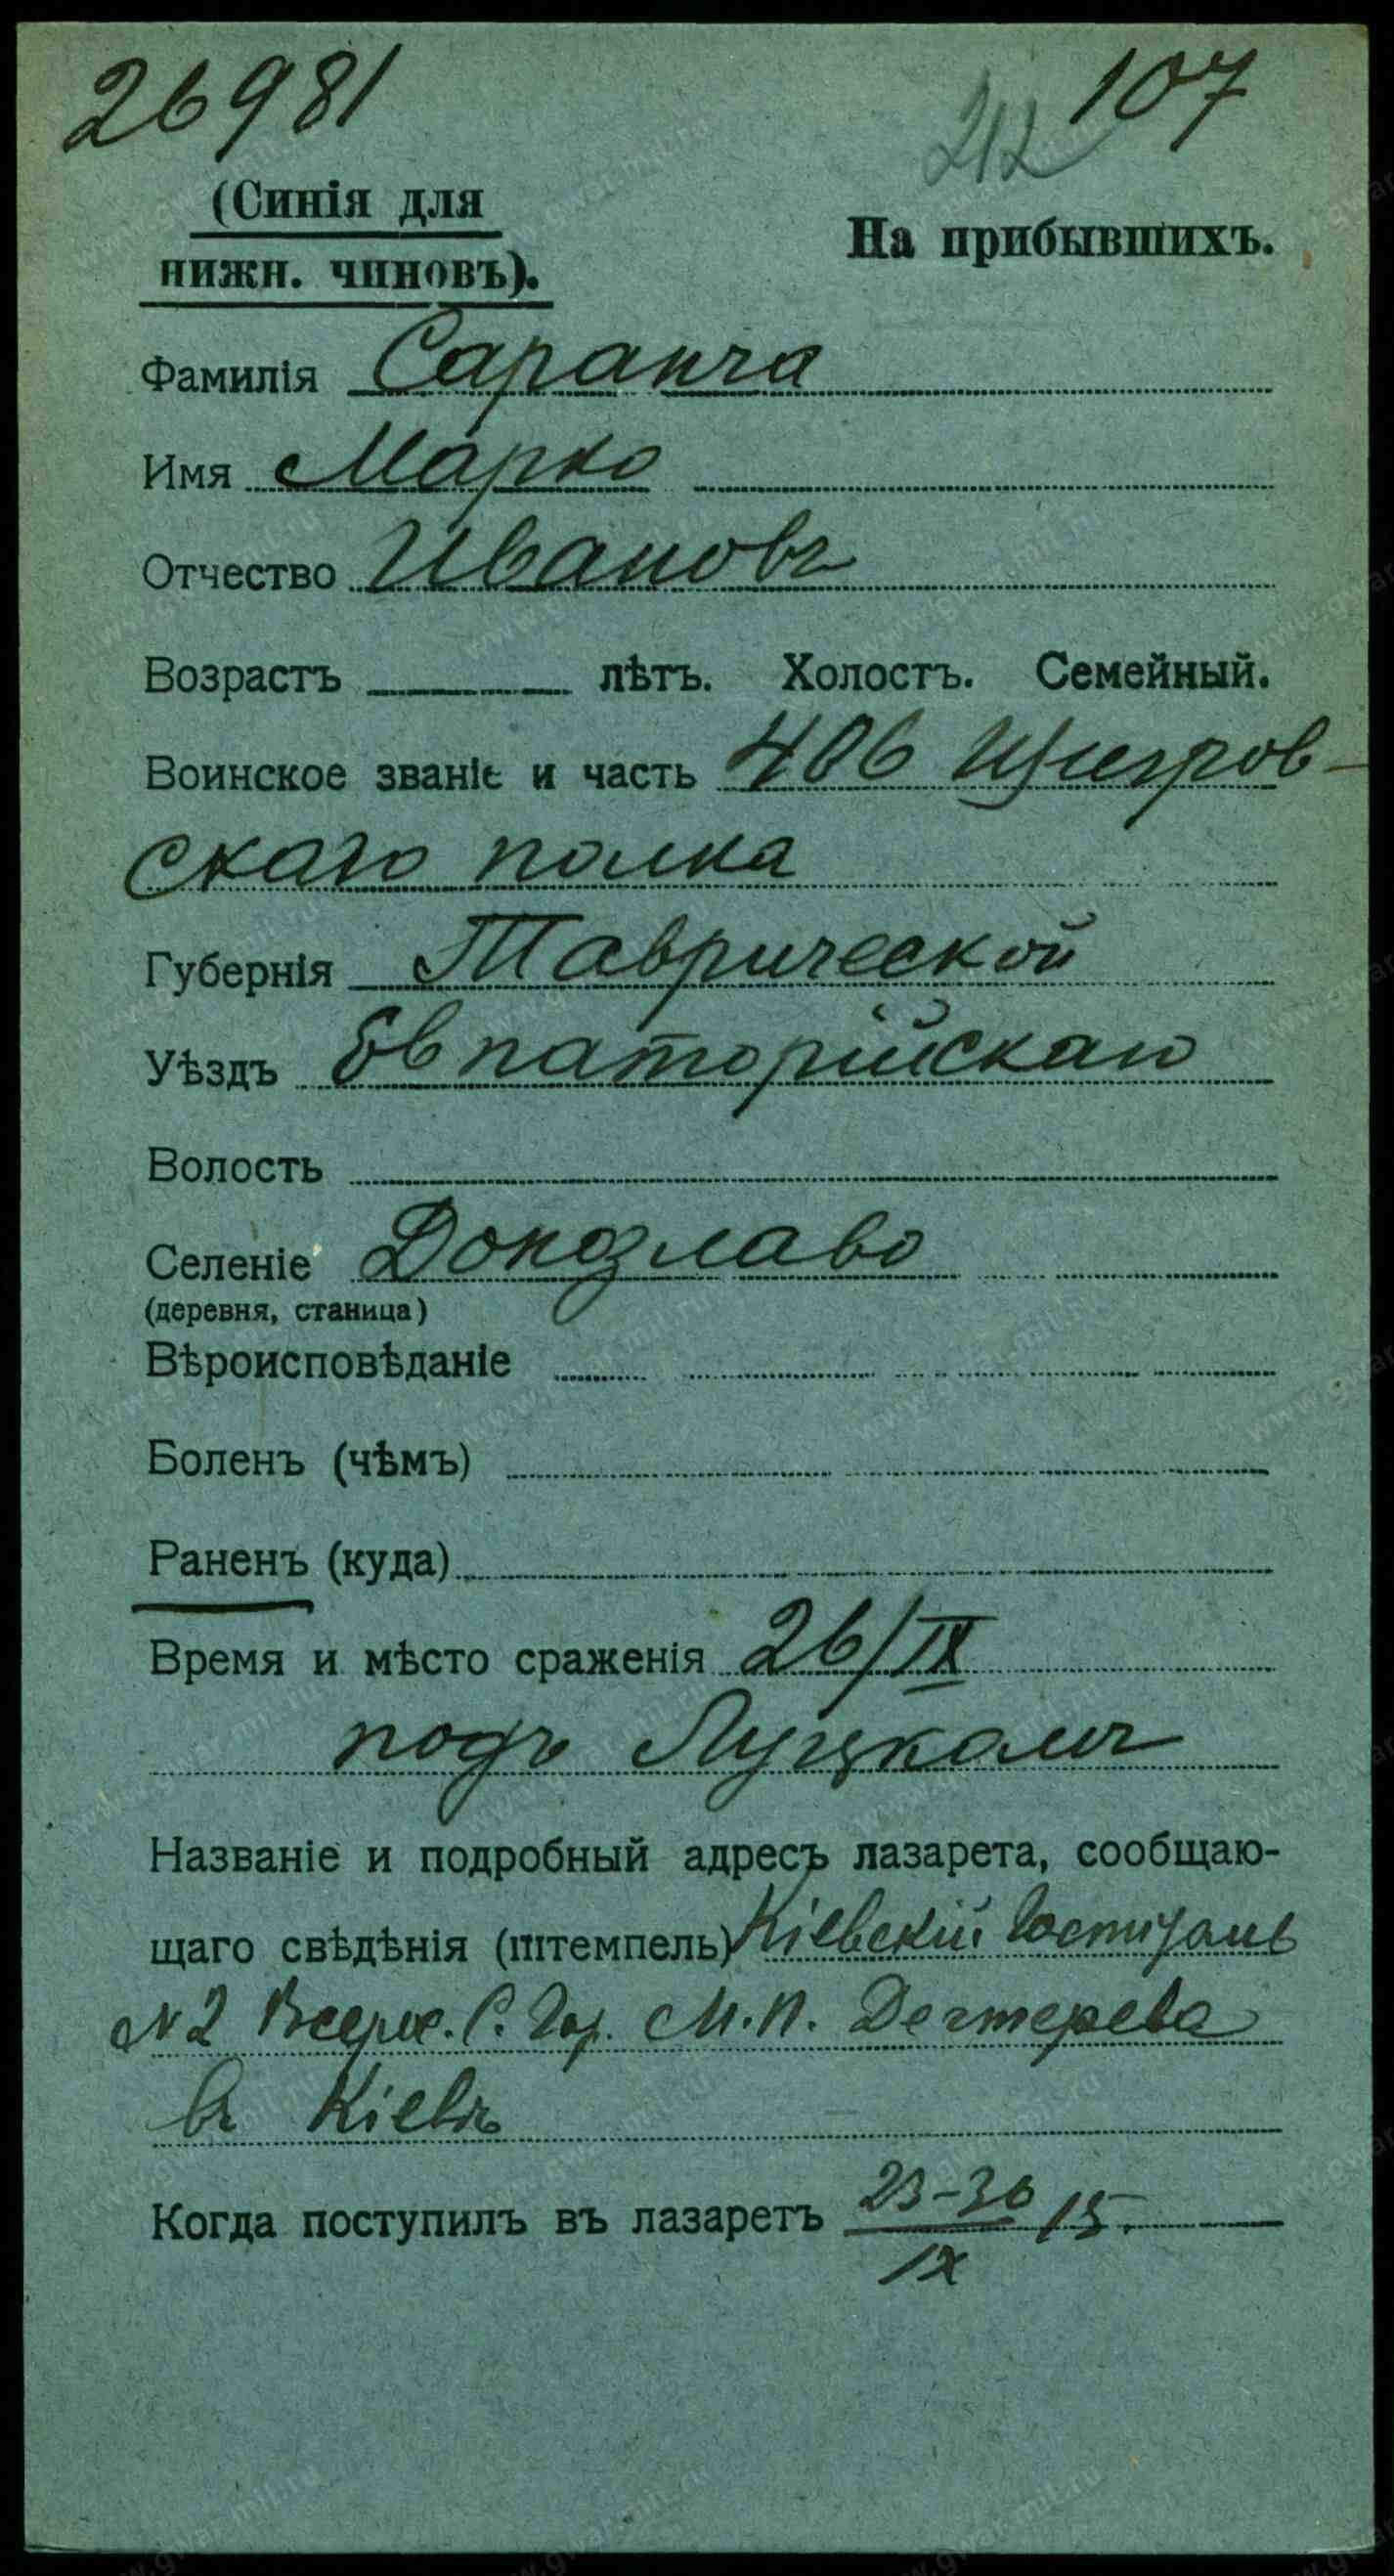 26981
107
212
(Синія для
нижн. чиновъ).
На прибывшихъ.
Фамилія Саранча
Имя Марко
Отчество Ивановъ
Возрастъ лѣтъ. Холостъ. Семейный.
Воинское званіе и часть 406 Щигров-
скаго полка
Губернія Таврической
Уѣздъ Евпаторійскаго
Волость
Селеніе Донозлаво
(деревня, станица)
Вѣроисповѣданіе
Боленъ (чѣмъ)
Раненъ (куда)
Время и мѣсто сраженія 26/IX
подъ Луцкомъ
Названіе и подробный адресъ лазарета, сообщаю-
щаго свѣдѣнія (штемпель) Кіевскій Госпиталь
№2 Всерос. С. Гор. М.П. Дегтерева
въ Кіевѣ
Когда поступилъ въ лазаретъ 23-30 15.
IX